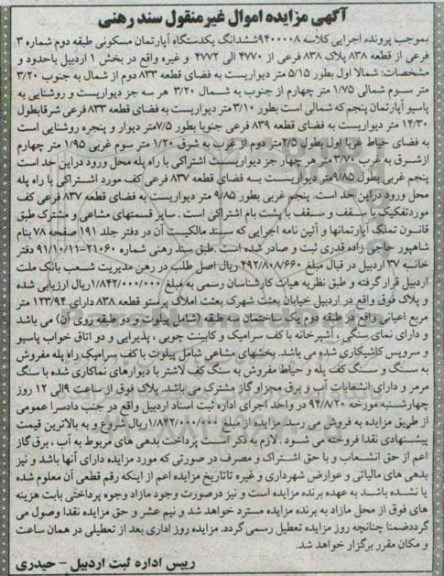 آگهی مزایده اموال غیرمنقول سند رهنی
بموجب پرونده اجرایی کلاسه ۹۴۰۰۰۰۸ ششدانگ یکدستگاه آپارتمان مسکونی طبقه دوم شماره ۳
فرعی از قطعه ۸۳۸ پلاک ۸۳۸ فرعی از ۴۷۷۰ الی ۴۷۷۲ و غیره واقع در بخش ۱ اردبیل باحدود و
مشخصات: شمالا اول بطور ۵/۱۵ متر دیواریست به فضای قطعه ۸۳۳ دوم از شمال به جنوب ۳/۲۰
متر سوم شمالی ۱/۷۵ متر چهارم از جنوب به شمال ۳/۲۰ هر سه جز دیواریست و روشنایی به
پاسیو آپارتمان پنجم که شمالی است بطور ۳/۱۰ متر دیواریست به فضای قطعه ۸۳۳ فرعی شرقا بطول
۱۴/۳۰ متر دیواریست به فضای قطعه ۸۳۹ فرعی جنوبا بطور ۷/۵ متر دیوار و پنجره روشنایی است
به فضای حیاط غربا اول بطول ۲/۵ متر دوم از غرب به شرق ۱/۲۰ متر سوم غربی ۱/۹۵ متر چهارم
ازشرق به غرب ۳/۷۰ متر هر چهار جز دیواریست اشتراکی با راه پله محل ورود دراین حد است
پنجم غربی بطول ۹/۸۵ متر دیواریست به فضای قطعه ۸۳۷ فرعی کف مورد اشتراکی با راه پله
محل ورود دراین حد است. پنجم غربی بطور ۹/۸۵ متر دیواریست به فضای قطعه ۸۳۷ فرعی کف
موردتفکیک با سقف و سقف با پشت بام اشتراکی است. سایر قسمتهای مشاعی و مشترک طبق
قانون تملک آپارتمانها و آئین نامه اجرایی که سند مالکیت آن در دفتر جلد ۱۹۱ صفحه ۷۸ بنام
شاهپور حاجی زاده قدری ثبت و صادر شده است طبق سند رهنی شماره ۲۱۰۶۰-۹۱/۱۰/۱۱ دفتر
خانه ۳۷ اردبیل در قبال مبلغ ۴۹۲/۸۰۸/۶۶۰ ریال اصل طلب در رهن مدیریت شعب بانک ملت
اردبیل قرار گرفته و طبق نظریه هیات کارشناسان رسمی به مبلغ ۱/۸۴۲/۰۰۰/۰۰۰ ریال ارزیابی شده
و پلاک فوق واقع در اردبیل خیابان بعثت شهرک بعثت املاک پرستو قطعه ۸۳۸ دارای ۱۲۳/۹۴ متر
مربع اعیانی واقع در طبقه دوم یک ساختمان سه طبقه (شامل پیلوت و دو طبقه روی آن) می باشد
و دارای نمای سنگی، آشپزخانه با کف سرامیک و کابینت چوبی، پذیرایی و دو اتاق خواب پاسیو
و سرویس کاشیکاری شده می باشد. بخشهای مشاعی شامل پیلوت با کف سرامیک راه پله مفروش
به سنگ و سنگ کف پله و حیاط مفروش به سنگ کف لاشتر با دیوارهای نماکاری شده با سنگ
مرمر و دارای انشعابات آب و برق مجزا و گاز مشترک می باشد. پلاک فوق از ساعت ۹ الی ۱۲ روز
چهارشنبه مورخه ۹۴/۸/۲۰ در واحد اجرای اداره ثبت اسناد اردبیل واقع در جنب دادسرا عمومی
از طریق مزایده به فروش می رسد. مزایده از مبلغ ۱/۸۴۲/۰۰۰/۰۰۰ ریال شروع و به بالاترین قیمت
پیشنهادی نقدا فروخته می شود. لازم به ذکر است پرداخت بدهی های مربوط به آب، برق گاز
اعم از حق انشعاب و یا حق اشتراک و مصرف در صورتی که مورد مزایده دارای آنها باشد و نیز
بدهی های مالیاتی و عوارض شهرداری و غیره تا تاریخ مزایده اعم از اینکه رقم قطعی آن معلوم شده
یا نشده باشد به عهده برنده مزایده است و نیز درصورت وجود مازاد وجوه پرداختی بابت هزینه
های فوق از محل مازاد به برنده مزایده مسترد خواهد شد و نیم عشر و حق مزایده نقدا وصول می
گرددضمنا چنانچه روز مزایده تعطیل رسمی گردد. مزایده روز اداری بعد از تعطیلی در همان ساعت
و مکان مقرر برگزار خواهد شد.
رییس اداره ثبت اردبیل - حیدری